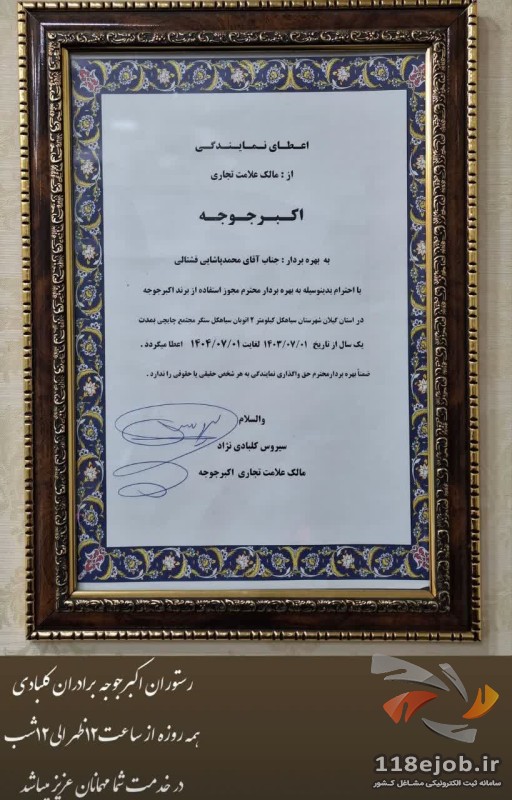 اعطای نمایندگی
از : مالک علامت تجاری
اکبرجوجه
به بهره بردار : جناب آقای محمدپاشایی فشتالی
با احترام بدینوسیله به بهره بردار محترم مجوز استفاده از برند اکبرجوجه
در استان گیلان شهرستان سیاهکل کیلومتر ۲ اتوبان سیاهکل سنگر مجتمع چایچی بمدت
یک سال از تاریخ ۱۴۰۳/۰۷/۰۱ لغایت ۱۴۰۴/۰۷/۰۱ اعطا میگردد .
ضمناً بهره بردارمحترم حق واگذاری نمایندگی به هر شخص حقیقی یا حقوقی را ندارد .
والسلام
سیروس کلبادی نژاد
مالک علامت تجاری اکبرجوجه
رستوران اکبرجوجه برادران کلبادی
همه روزه از ساعت ۱۲ ظهر الی ۱۲ شب
در خدمت شما مهمانان عزیز میباشد
118ejob.ir
سامانه ثبت الکترونیکی مشاغل کشور